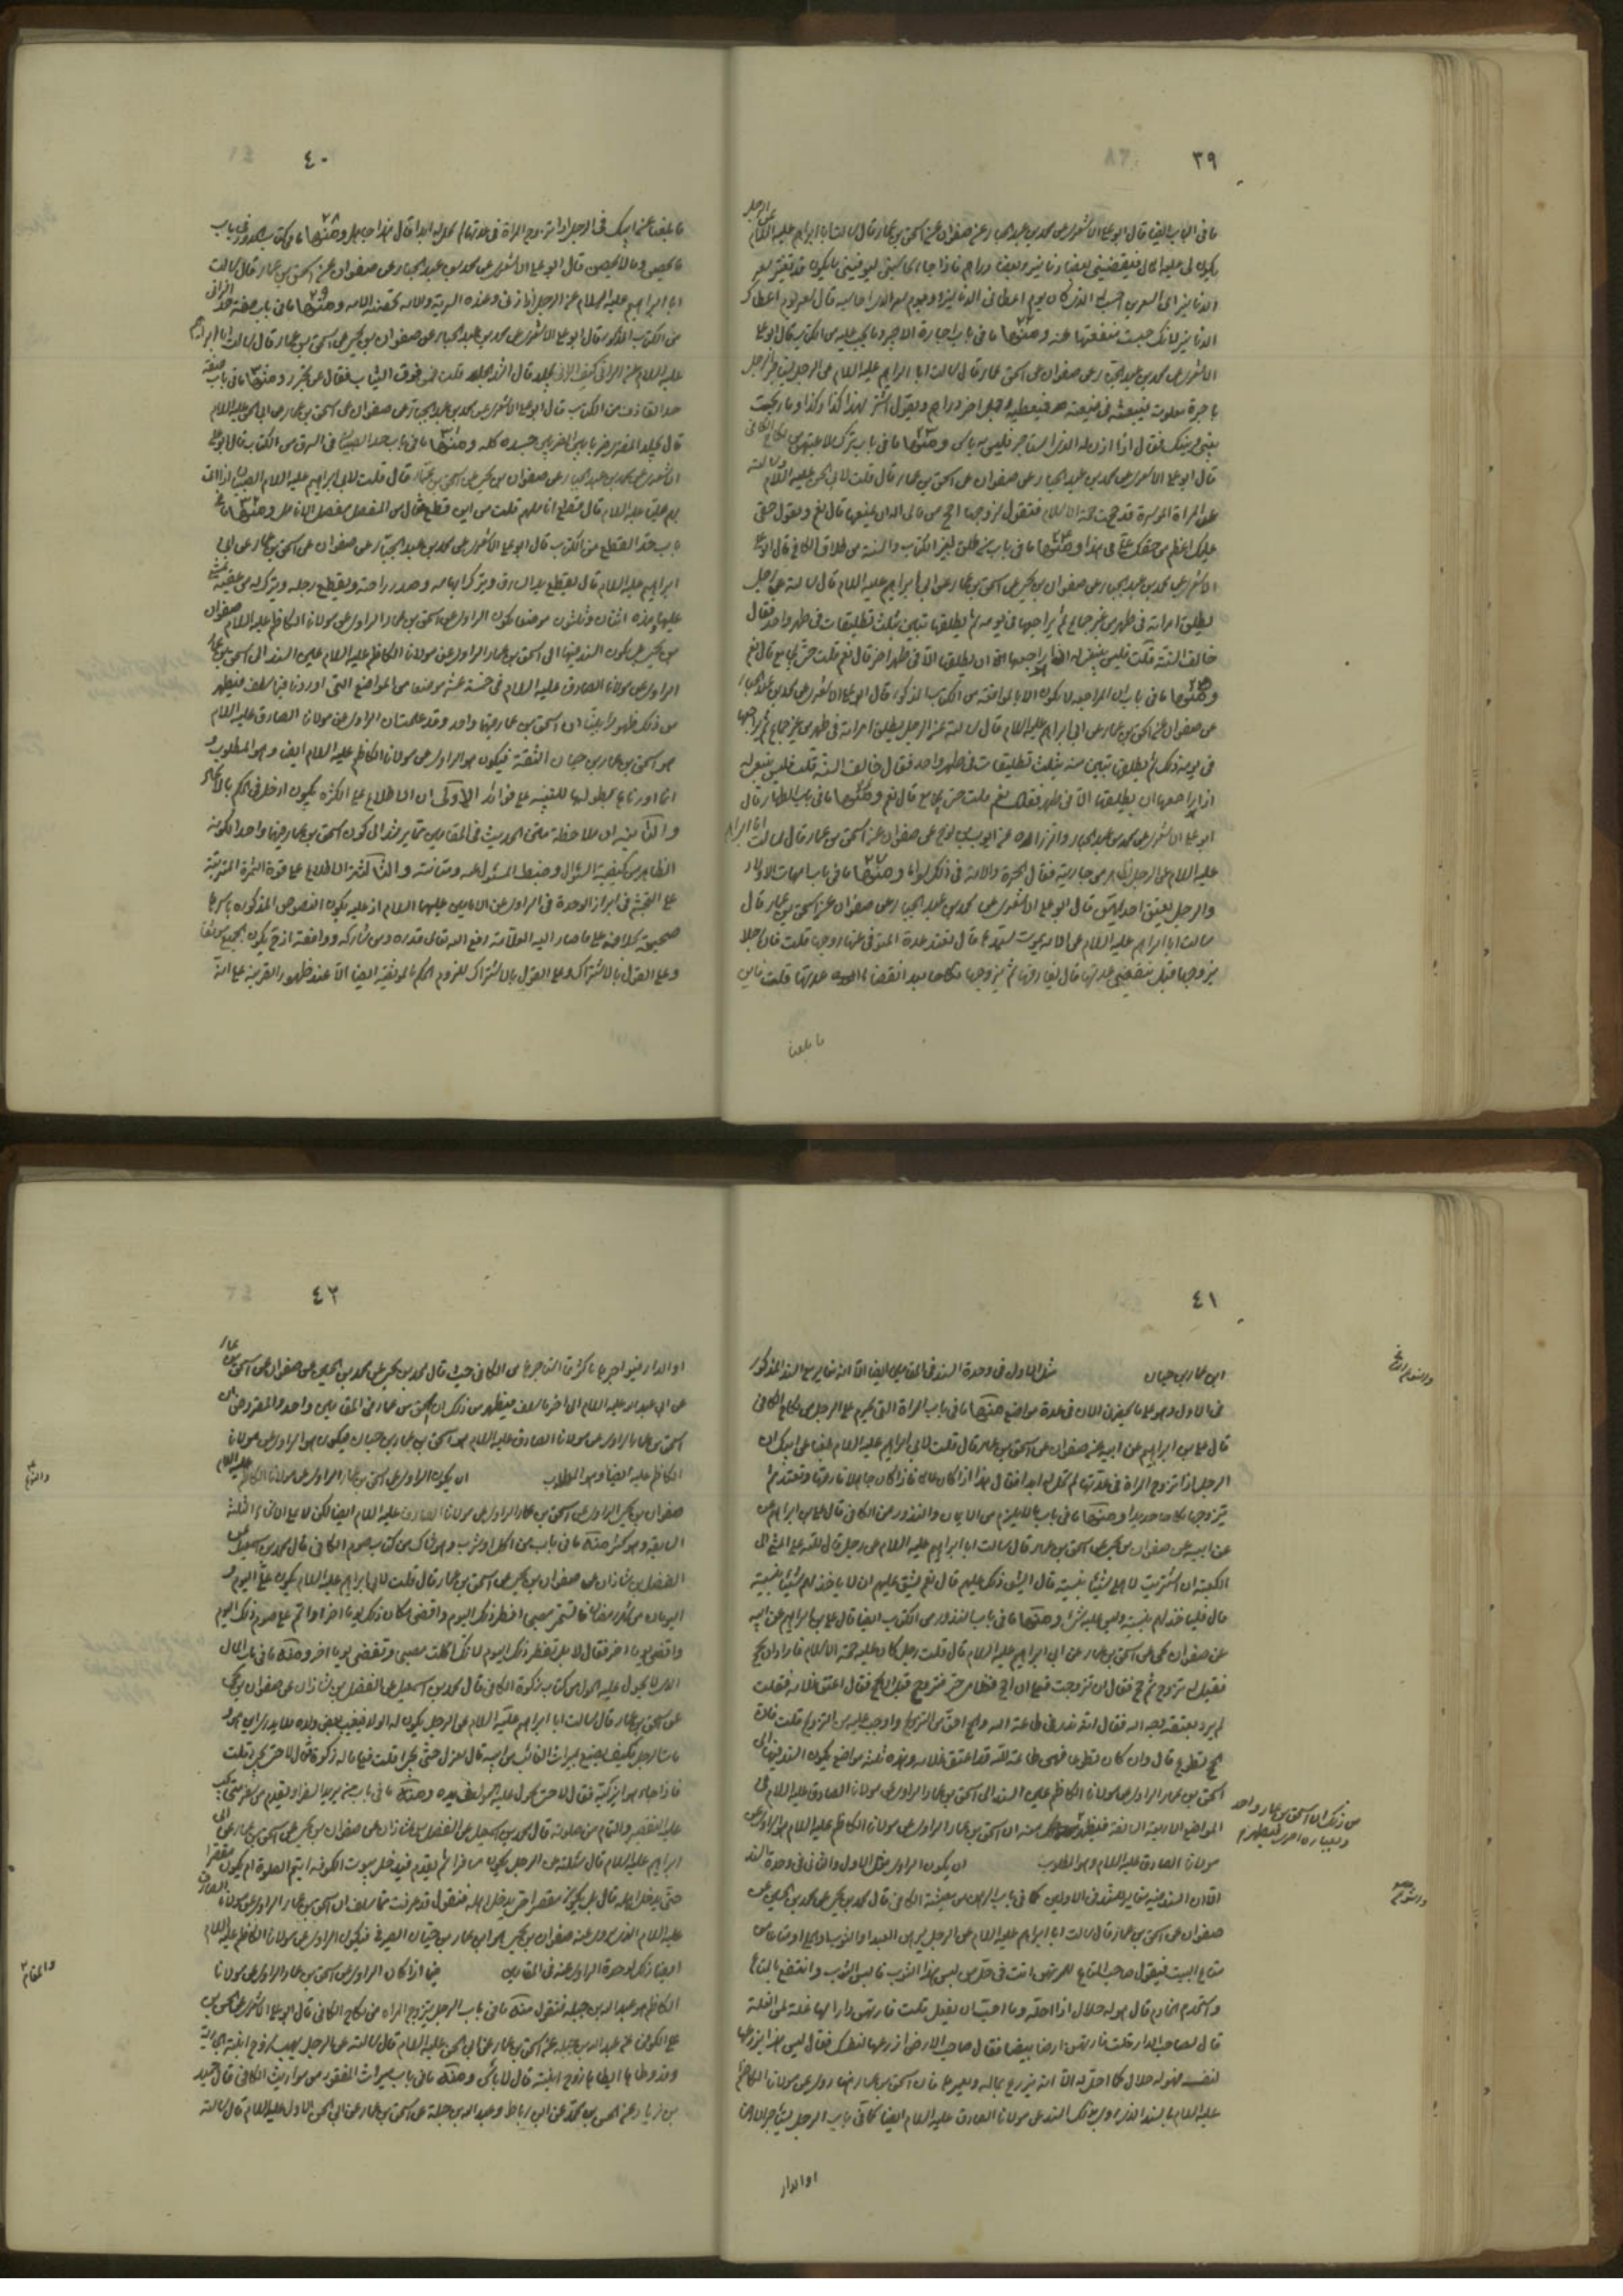 ٣٩
ما فى الباب ايضا قال ابو على الاشعرى عن محمد بن عبد الجبار عن صفوان عن اسحق بن عمار قال سالت ابا ابراهيم عليه السلام
عن الرجل
يكون لى عليه المال فيقضينى بعضا دنانير وبعضا دراهم فاذا جاء يحاسبنى ليوفينى يكون قد تغير سعر
الدنانير اى السعرين احسب الذى كان يوم اعطانى الدنانير او يوم احاسبه قال سعر يوم اعطاك
الدنانير لانك حبست منفعتها عنه ومنها ما فى باب اجارة الاجير وما يجب عليه من الكتاب قال ابو على
الاشعرى عن محمد بن عبد الجبار عن صفوان عن اسحق بن عمار قال سالت ابا ابراهيم عليه السلام عن الرجل يستاجر الرجل
باجرة معلومة فيبعثه فى ضيعته فيعطيه رجل اخر دراهم ويقول اشتر بهذا كذا وكذا وما ربحت
بينى وبينك فقال اذا اذن له الذى استاجره فليس به باس ومنها ما فى باب
قال ابو على الاشعرى عن محمد بن عبد الجبار عن صفوان عن اسحق بن عمار قال قلت لابى الحسن عليه السلام
عن المراة الموسرة قد حجت حجة الاسلام فتقول لزوجها احجنى من مالى اله ان يمنعها قال نعم ويقول حقى
عليك اعظم من حقك على فى هذا ومنها ما فى باب من طلق لغير الكتاب والسنة من طلاق الكافى قال ابو على
الاشعرى عن محمد بن عبد الجبار عن صفوان بن يحيى عن اسحق بن عمار عن ابى ابراهيم عليه السلام قال سالته عن رجل
يطلق امراته فى طهر من غير جماع ثم يراجعها فى يومه ثم يطلقها تبين بثلث تطليقات فى طهر واحد فقال
خالف السنة قلت فليس ينبغى له اذا راجعها ان يطلقها الا فى طهر اخر قال نعم قلت حتى يجامع قال نعم
ومنها ما فى باب ان المراجعة لا يكون الا بالمواقعة من الكتاب المذكور قال ابو على الاشعرى عن محمد بن عبد الجبار
عن صفوان عن اسحق بن عمار عن ابى ابراهيم عليه السلام قال سالته عن الرجل يطلق امراته فى طهر من غير جماع ثم يراجعها
فى يومه ذلك ثم يطلقها تبين منه بثلث تطليقات فى طهر واحد فقال خالف السنة قلت فليس ينبغى له
اذا راجعها ان يطلقها الا فى طهر فقال نعم قلت حتى يجامع قال نعم ومنها ما فى باب الظهار قال
ابو على الاشعرى عن محمد بن عبد الجبار والرزاز عن ايوب بن نوح عن صفوان عن اسحق بن عمار قال سالت ابا ابراهيم
عليه السلام عن الرجل يظاهر من جاريته فقال الحرة والامة فى ذلك سواء ومنها ما فى باب امهات الاولاد
والرجل يعتق احديهن قال ابو على الاشعرى عن محمد بن عبد الجبار عن صفوان عن اسحق بن عمار قال
سالت ابا ابراهيم عليه السلام عن الامة يموت سيدها قال تعتد عدة المتوفى عنها زوجها قلت فان رجلا
تزوجها قبل ان تنقضى عدتها قال يفارقها ثم يتزوجها نكاحا جديدا بعد انقضاء عدتها قلت فاين
ما بلغنا
٤٠
ما بلغنا عن ابيك فى الرجل اذا تزوج المراة فى عدتها لم تحل له ابدا قال هذا جاهل ومنها ما فى كتاب الحدود فى باب
ما يحصن وما لا يحصن قال ابو على الاشعرى عن محمد بن عبد الجبار عن صفوان عن اسحق بن عمار قال سالت
ابا ابراهيم عليه السلام عن الرجل اذا زنى وعنده السرية والامة تحصنه الامة ومنها ما فى باب صفة حد الزانى
من الكتاب المذكور قال ابو على الاشعرى عن محمد بن عبد الجبار عن صفوان بن يحيى عن اسحق بن عمار قال سالت ابا ابراهيم
عليه السلام عن الزانى كيف يجلد قال اشد الجلد قلت فمن فوق الثياب فقال بل يجرد ومنها ما فى باب
حد القاذف من الكتاب قال ابو على الاشعرى عن محمد بن عبد الجبار عن صفوان عن اسحق بن عمار عن ابى الحسن عليه السلام
قال يجلد المفترى ضربا بين الضربين جسده كله ومنها ما فى باب حد الصبيان فى السرق من الكتاب قال ابو على
الاشعرى عن محمد بن عبد الجبار عن صفوان بن يحيى عن اسحق بن عمار قال قلت لابى ابراهيم عليه السلام الصبيان اذا اتى
بهم عليا عليه السلام قال قطع اناملهم قلت من اين قطع فقال من المفصل مفصل الانامل ومنها ما فى
باب حد القطع من الكتاب قال ابو على الاشعرى عن محمد بن عبد الجبار عن صفوان عن اسحق بن عمار عن ابى
ابراهيم عليه السلام قال يقطع يد السارق ويترك ابهامه وصدر راحته ويقطع رجله ويترك له عقبه يمشى
عليها فهذه اثنان وثلثون موضعا يكون الراوى عن اسحق بن عمار الراوى عن مولانا الكاظم عليه السلام صفوان
بن يحيى يكون السند فيها الى اسحق بن عمار الراوى عن مولانا الكاظم عليه السلام عين السند الى اسحق بن عمار
الراوى عن مولانا الصادق عليه السلام فى خمسة عشر موضعا من المواضع التى اوردناها فيما سلف فيظهر
من ذلك ظهورا بينا ان اسحق بن عمار فيها واحد وقد علمت ان الراوى عن مولانا الصادق عليه السلام
هو اسحق بن عمار بن حيان الثقة فيكون هو الراوى عن مولانا الكاظم عليه السلام ايضا وهو المطلوب و
انما اوردناها بطولها للتنبيه على فوائد الاولى ان الاطلاع على الكثرة يكون ادخل فى الحكم بالاتحاد
والثانية ان ملاحظة متن الحديث فى المقامين مما يرشد الى كون اسحق بن عمار فيها واحدا لكونه
الظاهر من كيفية السؤال وضبط المسئول عنه ومتانته والثالثة الاطلاع على قوة الثمرة المترتبة
على التجشم فى ابراز الوحدة فى الراوى عن الامامين عليهما السلام اذ عليه يكون النصوص المذكورة باسرها
صحيحة بخلافه على ما صار اليه العلامة رفع الله تعالى قدره ومن شاركه ووافقه اذ ح يكون الجميع موثقا
وعلى القول بالاشتراك وعلى القول بالاشتراك للزوم الحكم بالموثقية ايضا الا عند ظهور القرينة على انه
٤١
ابن عمار بن حيان مثل الاول فى وحدة السند فى المقامين ايضا الا انه مغاير مع السند المذكور
فى الاول وهو على ما يحضرنى الان فى عدة مواضع منها ما فى باب المراة التى تحرم على الرجل من نكاح الكافى
قال على بن ابراهيم عن ابيه عن صفوان عن اسحق بن عمار قال قلت لابى ابراهيم عليه السلام بلغنا عن ابيك ان
الرجل اذا تزوج المراة فى عدتها لم تحل له ابدا فقال هذا اذا كان عالما فاذا كان جاهلا فارقها وتعتد ثم
يتزوجها نكاحا جديدا ومنها ما فى باب ما لا يلزم من الايمان والنذور من الكافى قال على بن ابراهيم
عن ابيه عن صفوان بن يحيى عن اسحق بن عمار قال سالت ابا ابراهيم عليه السلام عن رجل قال لله على المشى الى
الكعبة ان اشتريت لاهلى شيئا بنسيئة قال ايشق ذلك عليهم قال نعم يشق عليهم ان لا ياخذ لهم شيئا بنسيئة
قال فلياخذ لهم بنسيئة وليس عليه شىء ومنها ما فى باب النذور من الكتاب ايضا قال على بن ابراهيم عن ابيه
عن صفوان بن يحيى عن اسحق بن عمار عن ابى ابراهيم عليه السلام قال قلت رجل كان عليه حجة الاسلام فاراد ان يحج
فقيل له تزوج ثم حج فقال ان تزوجت قبل ان احج فغلامى حر فتزوج قبل ان يحج فقال اعتق غلامه فقلت
لم يرد بعتقه وجه الله فقال انه نذر فى طاعة الله والحج احق من التزويج واوجب عليه من التزويج قلت فان
الحج تطوع قال وان كان تطوعا فهى طاعة لله قد اعتق غلامه وهذه ثلثة مواضع يكون السند فيها الى
اسحق بن عمار الراوى عن مولانا الكاظم عليه السلام عين السند الى اسحق بن عمار الراوى عن مولانا الصادق عليه السلام فى
المواضع الاربعة السالفة فيظهر منه ان اسحق بن عمار الراوى عن مولانا الكاظم عليه السلام هو الراوى عن
مولانا الصادق عليه السلام وهو المطلوب ان يكون الراوى مثل الاول والثانى فى وحدة السند
الا ان السند فيه مغاير للسند فى الاولين كما فى باب الرهن من معيشة الكافى قال محمد بن يحيى عن محمد بن الحسين عن
صفوان عن اسحق بن عمار قال سالت ابا ابراهيم عليه السلام عن الرجل يرهن العبد او الثوب او الحلى او متاعا من
متاع البيت فيقول صاحب المتاع للمرتهن انت فى حل من لبس هذا الثوب فالبس الثوب وانتفع بالمتاع
واستخدم الخادم قال هو له حلال اذا احله وما احب ان يفعل قلت فارتهن دارا لها غلة لمن الغلة
قال لصاحب الدار قلت فارتهن ارضا بيضاء فقال صاحب الارض ازرعها لنفسك فقال ليس هذا مثل هذا يزرعها
لنفسه فهو له حلال كما احله له الا انه يزرع بماله ويعمرها فان اسحق بن عمار هذا روى عن مولانا الكاظم
عليه السلام بالسند الذى روى بذلك السند عن مولانا الصادق عليه السلام ايضا كما فى باب الرجل يستاجر الارض
او الدار
من ذلك ان اسحق بن عمار واحد
وبعبارة اخرى فيظهر
٤٢
او الدار فيؤاجرها باكثر مما استاجرها من الكافى حيث قال محمد بن يحيى عن محمد بن الحسين عن صفوان عن اسحق بن عمار
عن ابى عبد الله عليه السلام الى اخر ما سلف فيظهر من ذلك ان اسحق بن عمار فى المقامين واحد والمفروض ان
اسحق بن عمار الراوى عن مولانا الصادق عليه السلام هو اسحق بن عمار بن حيان فيكون هو الراوى عن مولانا
الكاظم عليه السلام ايضا وهو المطلوب ان يكون الراوى عن اسحق بن عمار الراوى عن مولانا الكاظم عليه السلام
صفوان بن يحيى الراوى عن اسحق بن عمار الراوى عن مولانا الصادق عليه السلام ايضا لكن لا على الانحاء الثلثة
السابقة وهو كثير منه ما فى باب من اكل او شرب وهو شاك من كتاب صوم الكافى قال محمد بن اسمعيل عن
الفضل بن شاذان عن صفوان بن يحيى عن اسحق بن عمار قال قلت لابى ابراهيم عليه السلام يكون على اليوم و
اليومان من شهر رمضان فاتسحر مصبحا افطر ذلك اليوم واقضى مكان ذلك يوما اخر او اتم على صوم ذلك اليوم
واقضى يوما اخر فقال لا بل تفطر ذلك اليوم لانك اكلت مصبحا وتقضى يوما اخر ومنه ما فى باب المال
الذى لا يحول عليه الحول من كتاب زكوة الكافى قال محمد بن اسمعيل عن الفضل بن شاذان عن صفوان بن يحيى
عن اسحق بن عمار قال سالت ابا ابراهيم عليه السلام عن الرجل يكون له الولد فيغيب بعض ولده فلا يدرى اين هو و
مات الرجل فكيف يصنع بميراث الغائب من ابيه قال يعزل حتى يجىء قلت فعلى ماله زكوة قال لا حتى يجىء قلت
فاذا جاء هو ايزكيه فقال لا حتى يحول عليه الحول فى يده ومنه ما فى باب من يريد السفر او يقدم من سفر متى يجب
عليه التقصير والتمام من صلوته قال محمد بن اسمعيل عن الفضل بن شاذان عن صفوان بن يحيى عن اسحق بن عمار عن ابى
ابراهيم عليه السلام قال سئلته عن الرجل يكون مسافرا ثم يقدم فيدخل بيوت الكوفة ايتم الصلوة ام يكون مقصرا
حتى يدخل اهله قال بل يكون مقصرا حتى يدخل اهله فنقول قد عرفت مما سلف ان اسحق بن عمار الراوى عن مولانا الصادق
عليه السلام الذى روى عنه صفوان بن يحيى هو ابن عمار بن حيان الصيرفى فيكون الراوى عن مولانا الكاظم عليه السلام
ايضا ذلك لوحدة الراوى عنه فى المقامين فيما اذا كان الراوى عن اسحق بن عمار الراوى عن مولانا
الكاظم هو عبد الله بن جبلة فنقول منه ما فى باب الرجل يتزوج المراة من نكاح الكافى قال ابو على الاشعرى عن الحسن بن
على الكوفى عن عبد الله بن جبلة عن اسحق بن عمار عن ابى الحسن عليه السلام قال سالته عن الرجل يهب لزوج ابنته الجارية
وقد وطئها ايطاها زوج ابنته قال لا باس ومنه ما فى باب ميراث المفقود من مواريث الكافى قال حميد
بن زياد عن الحسن بن محمد عن ابن رباط وعبد الله بن جبلة عن اسحق بن عمار عن ابى الحسن الاول عليه السلام قال سالته
والمقام